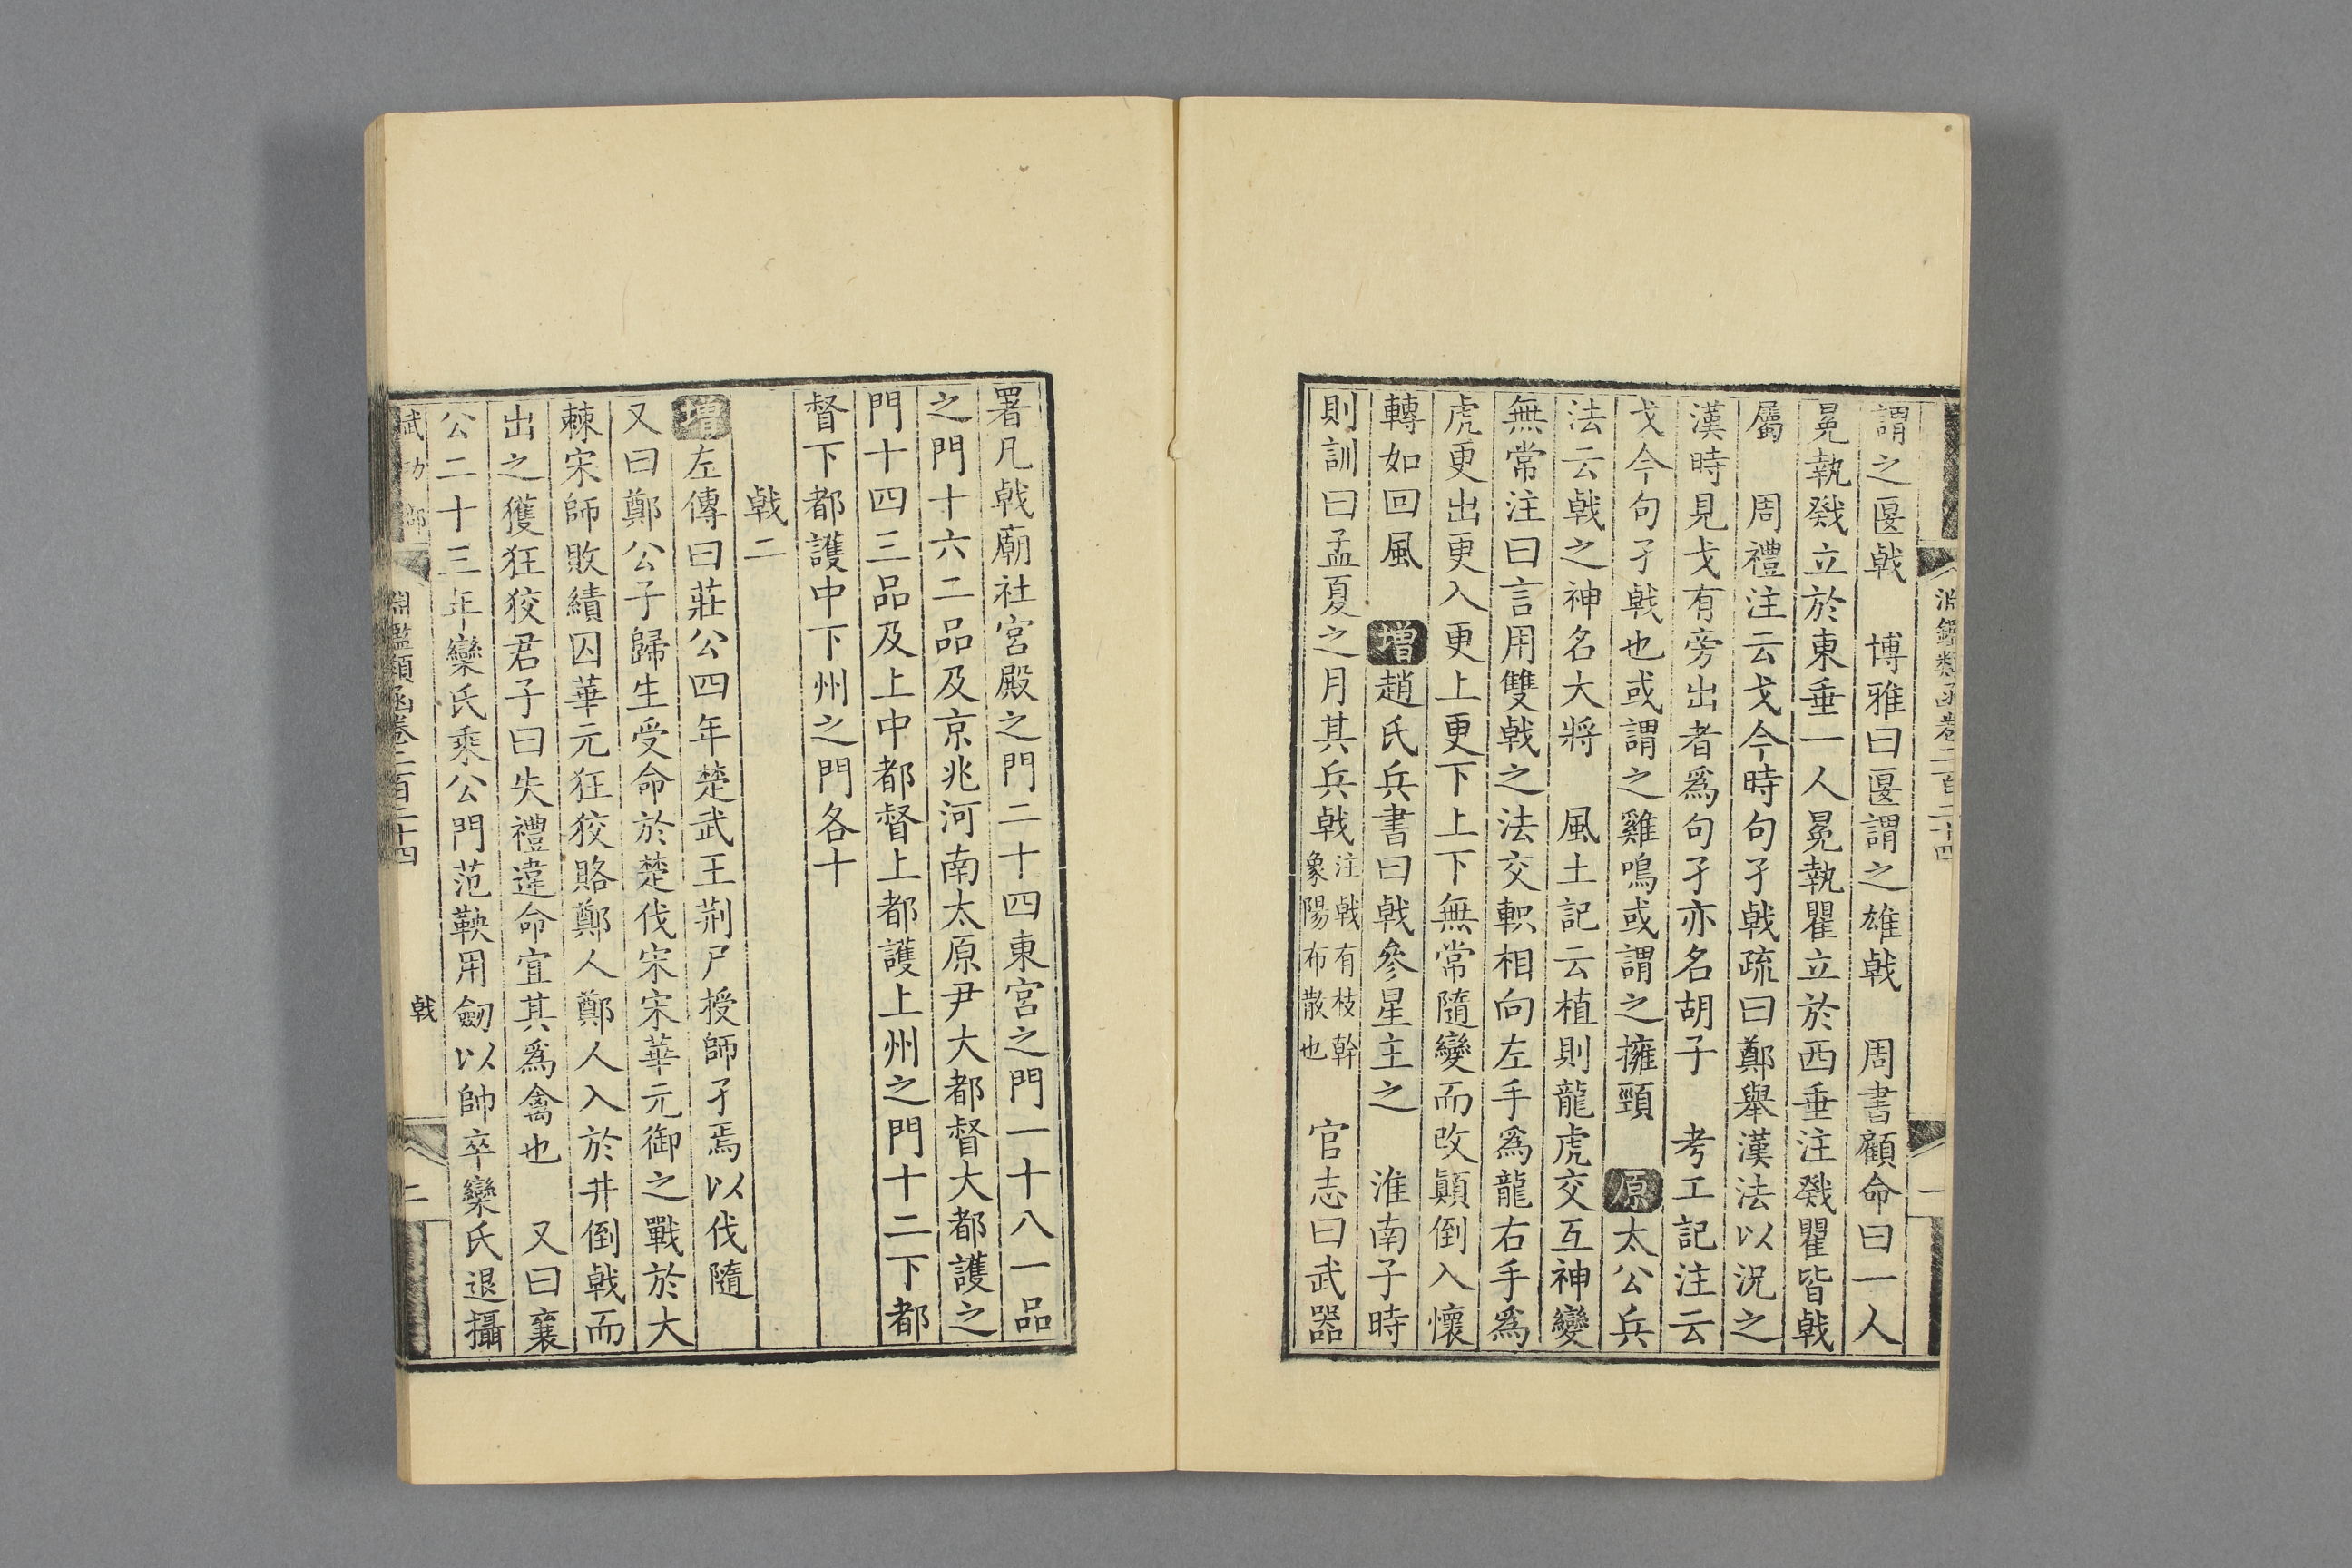 淵鑑類函卷二百二十四
一
謂之匽戟　博雅曰匽謂之雄戟　周書顧命曰一人
冕執戣立於東垂一人冕執瞿立於西垂注戣瞿皆戟
屬　周禮注云戈今時句孑戟疏曰鄭舉漢法以況之
漢時見戈有旁出者爲句孑亦名胡子　考工記注云
戈今句孑戟也或謂之雞鳴或謂之擁頸　原太公兵
法云戟之神名大將　風土記云植則龍虎交互神變
無常注曰言用雙戟之法交軹相向左手爲龍右手爲
虎更出更入更上更下上下無常隨變而改顚倒入懷
轉如回風　增趙氏兵書曰戟參星主之　淮南子時
則訓曰孟夏之月其兵戟注戟有枝幹象陽布散也　官志曰武器
署凡戟廟社宮殿之門二十四東宮之門一十八一品
之門十六二品及京兆河南太原尹大都督大都護之
門十四三品及上中都督上都護上州之門十二下都
督下都護中下州之門各十
戟二
增左傳曰莊公四年楚武王荊尸授師孑焉以伐隨
又曰鄭公子歸生受命於楚伐宋宋華元御之戰於大
棘宋師敗績囚華元狂狡輅鄭人鄭人入於井倒戟而
出之獲狂狡君子曰失禮違命宜其爲禽也　又曰襄
公二十三年欒氏乘公門范鞅用劒以帥卒欒氏退攝
武功部
淵鑑類函卷二百二十四
戟
二